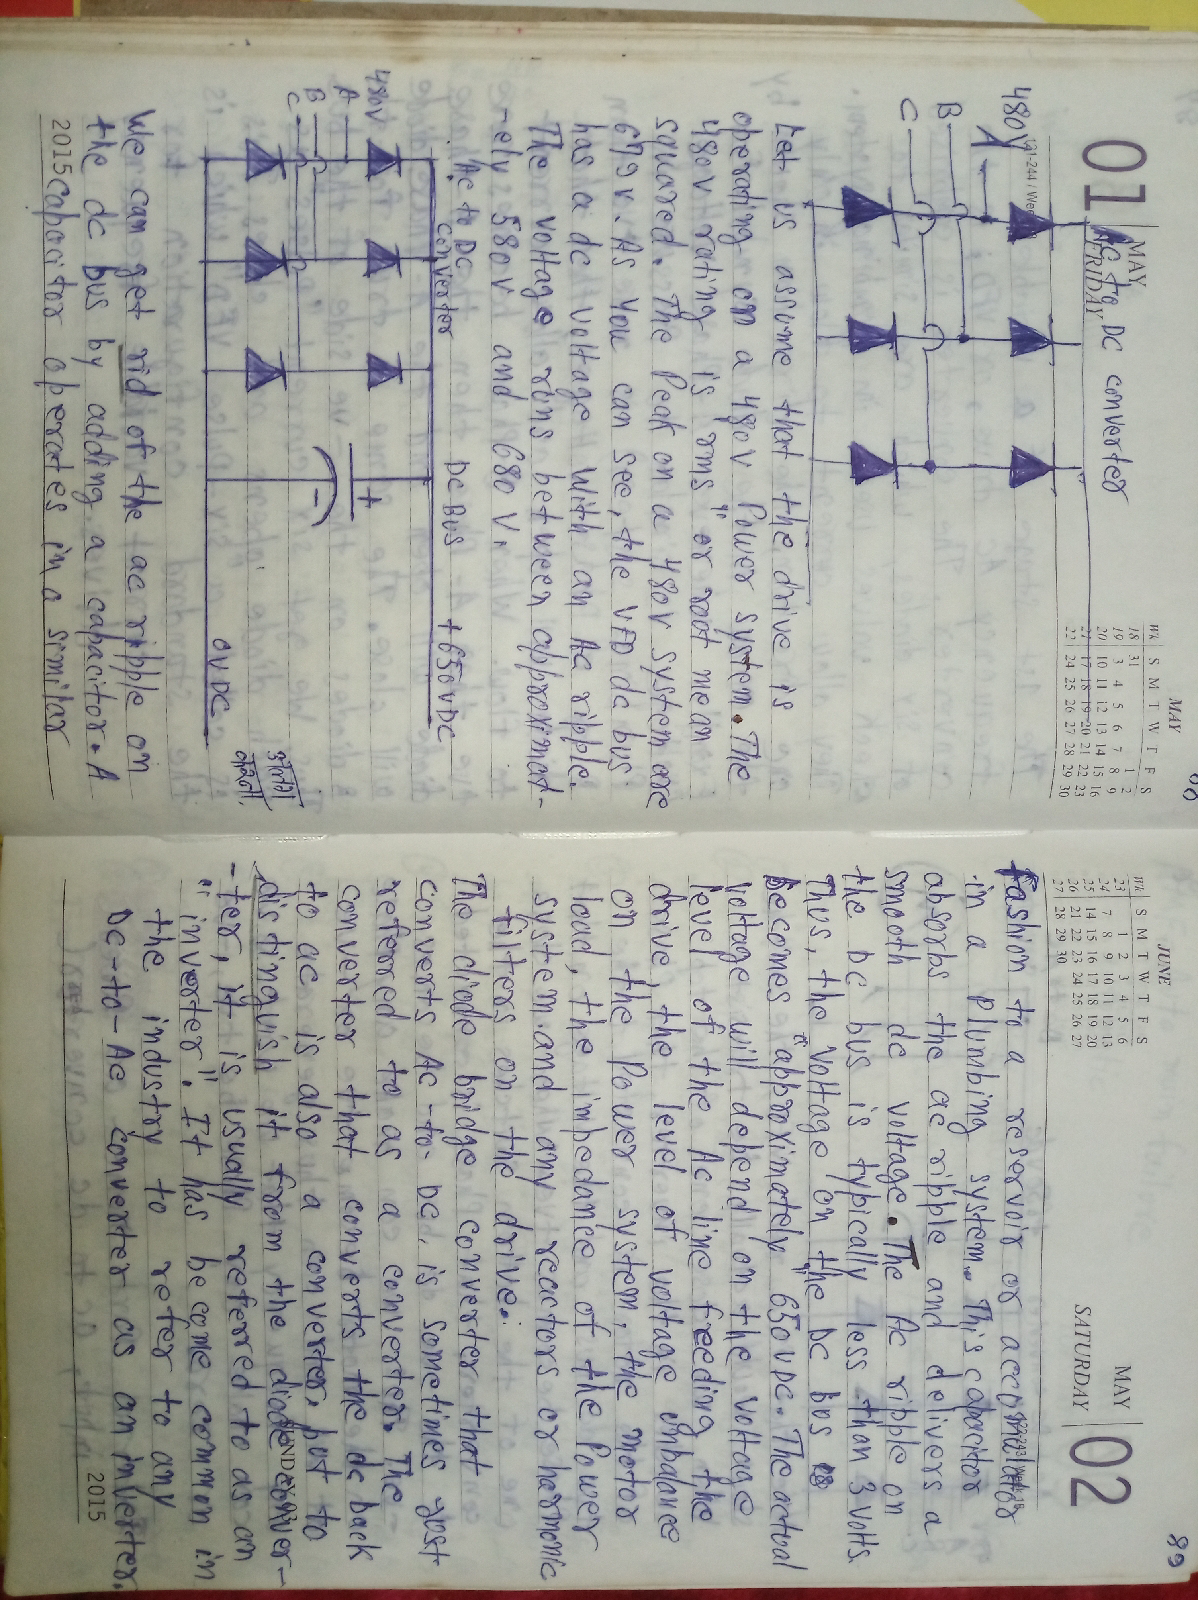 01 MAY
FRIDAY
MAY
WK S M T W T F S
18 31 1 2
19 3 4 5 6 7 8 9
20 10 11 12 13 14 15 16
21 17 18 19 20 21 22 23
22 24 25 26 27 28 29 30
Ac to DC converter
480V
A
B
C
Let us assume that the drive is
operating on a 480V Power system. The
480V rating is "rms" or root mean
squared. The Peak on a 480V system are
679V. As you can see, the VFD dc bus
has a dc voltage with an Ac ripple.
The voltage runs between approximat-
ely 580V and 680V.
Ac to DC
converter
DC Bus +650VDC
480V
A
B
C
+
-
0VDC
We can get rid of the ac ripple on
the dc bus by adding a capacitor. A
capacitor operates in a similar
2015
JUNE
WK S M T W T F S
23 1 2 3 4 5 6
24 7 8 9 10 11 12 13
25 14 15 16 17 18 19 20
26 21 22 23 24 25 26 27
27 28 29 30
MAY 02
SATURDAY
89
fashion to a reservoir or accumulator
in a plumbing system. This capacitor
absorbs the ac ripple and delivers a
smooth dc voltage. The Ac ripple on
the DC bus is typically less than 3 Volts.
Thus, the voltage on the DC bus
becomes "approximately" 650VDC. The actual
voltage will depend on the voltage
level of the Ac line feeding the
drive, the level of voltage unbalance
on the Power system, the motor
load, the impedance of the Power
system and any reactors or harmonic
filters on the drive.
The diode bridge converter that
converts Ac-to-DC, is sometimes just
referred to as a converter. The
converter that converts the dc back
to ac is also a converter, but to
distinguish it from the diode conver-
-ter, it is usually referred to as an
"inverter". It has become common in
the industry to refer to any
DC-to-Ac converter as an inverter.
2015